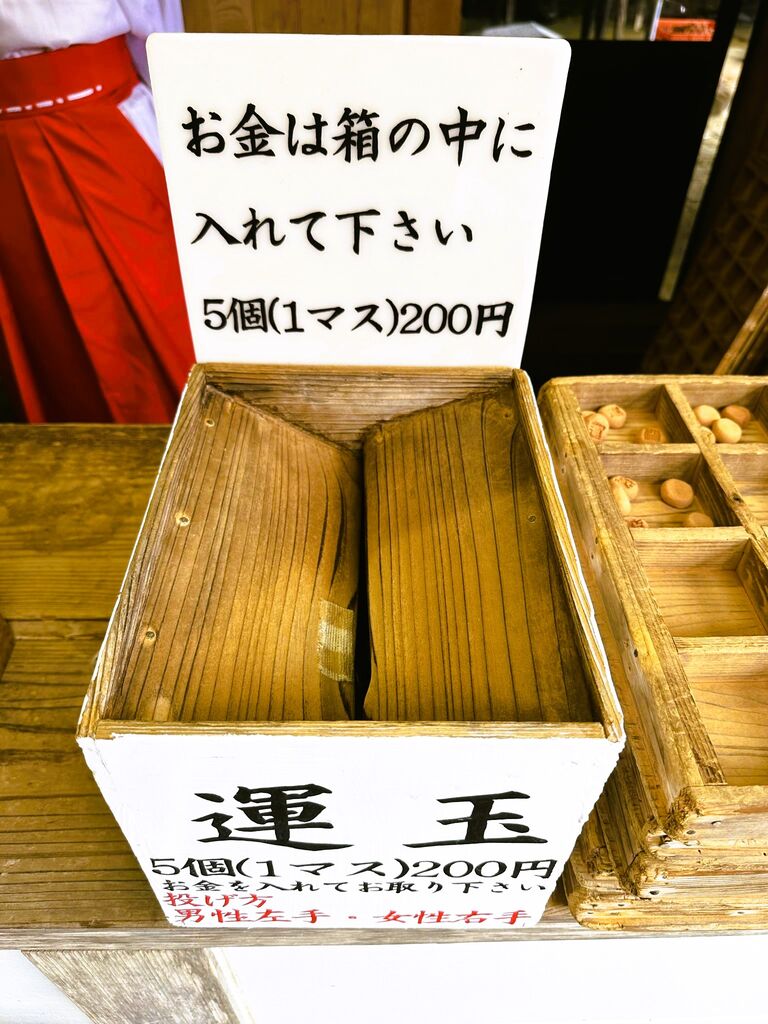 お金は箱の中に
入れて下さい
5個(1マス)200円
運玉
5個(1マス)200円
お金を入れてお取り下さい
投げ方
男性左手・女性右手